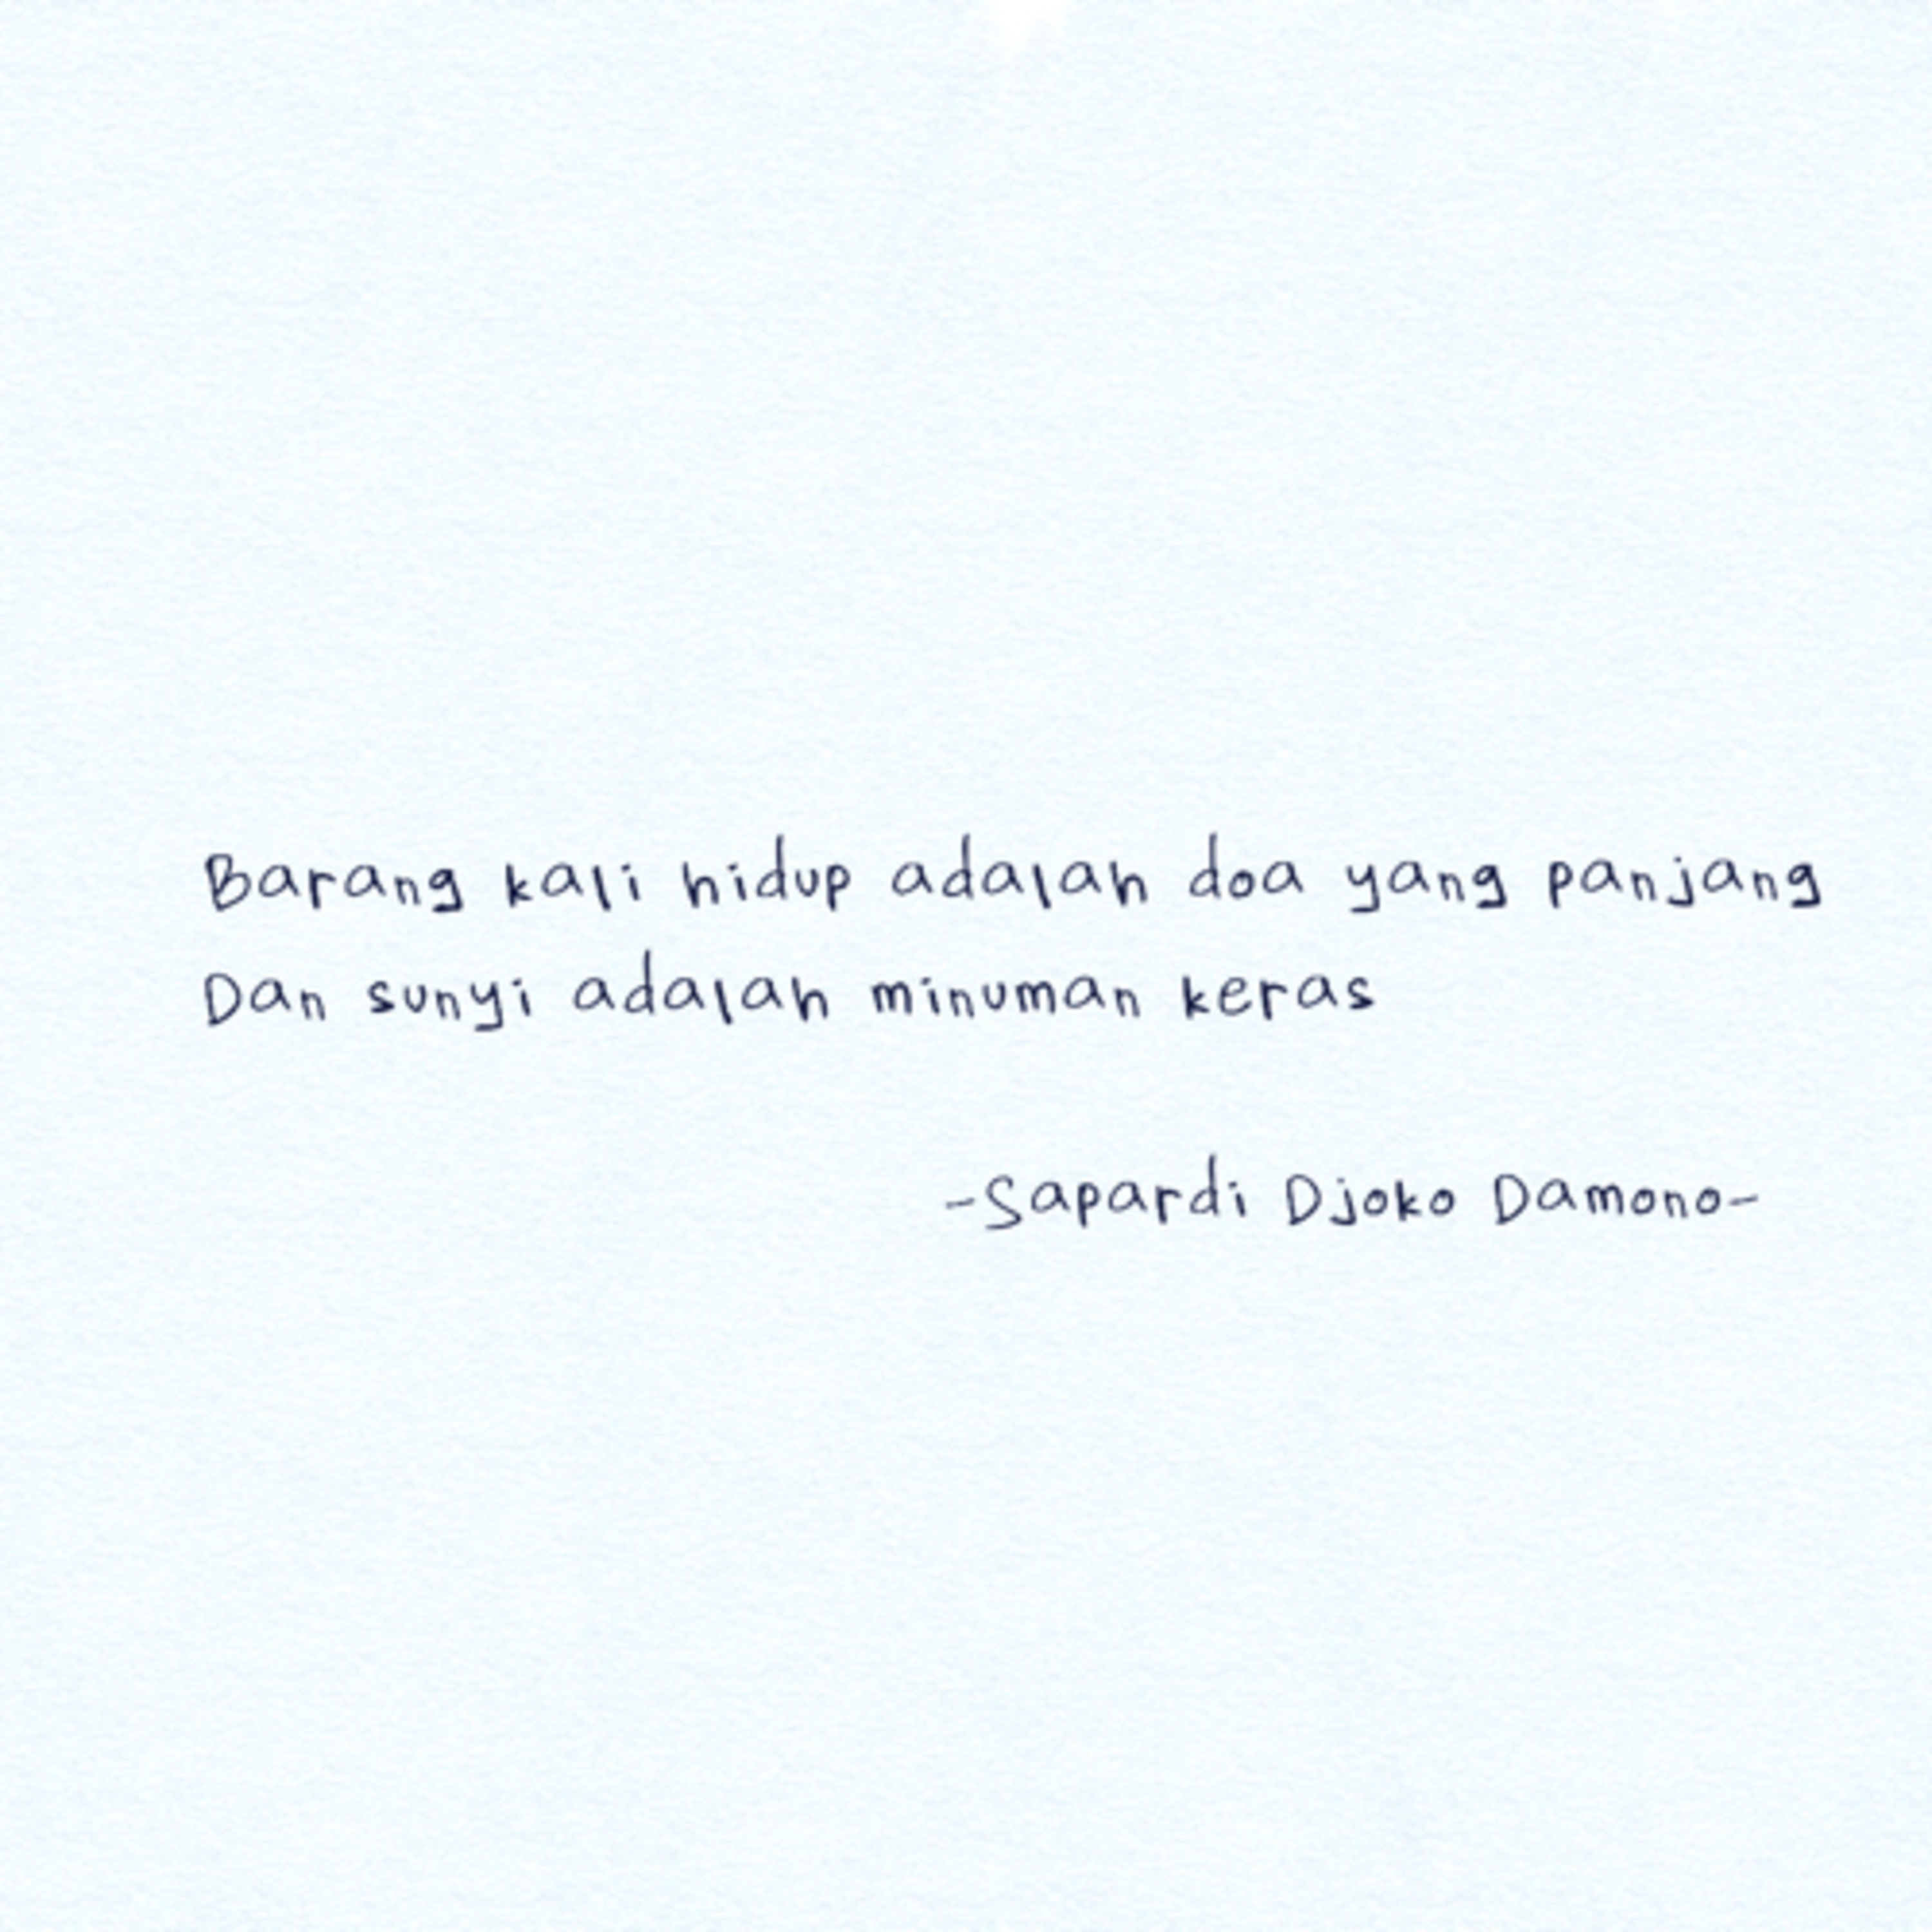 Barang kali hidup adalah doa yang panjang
Dan sunyi adalah minuman keras
-Sapardi Djoko Damono-